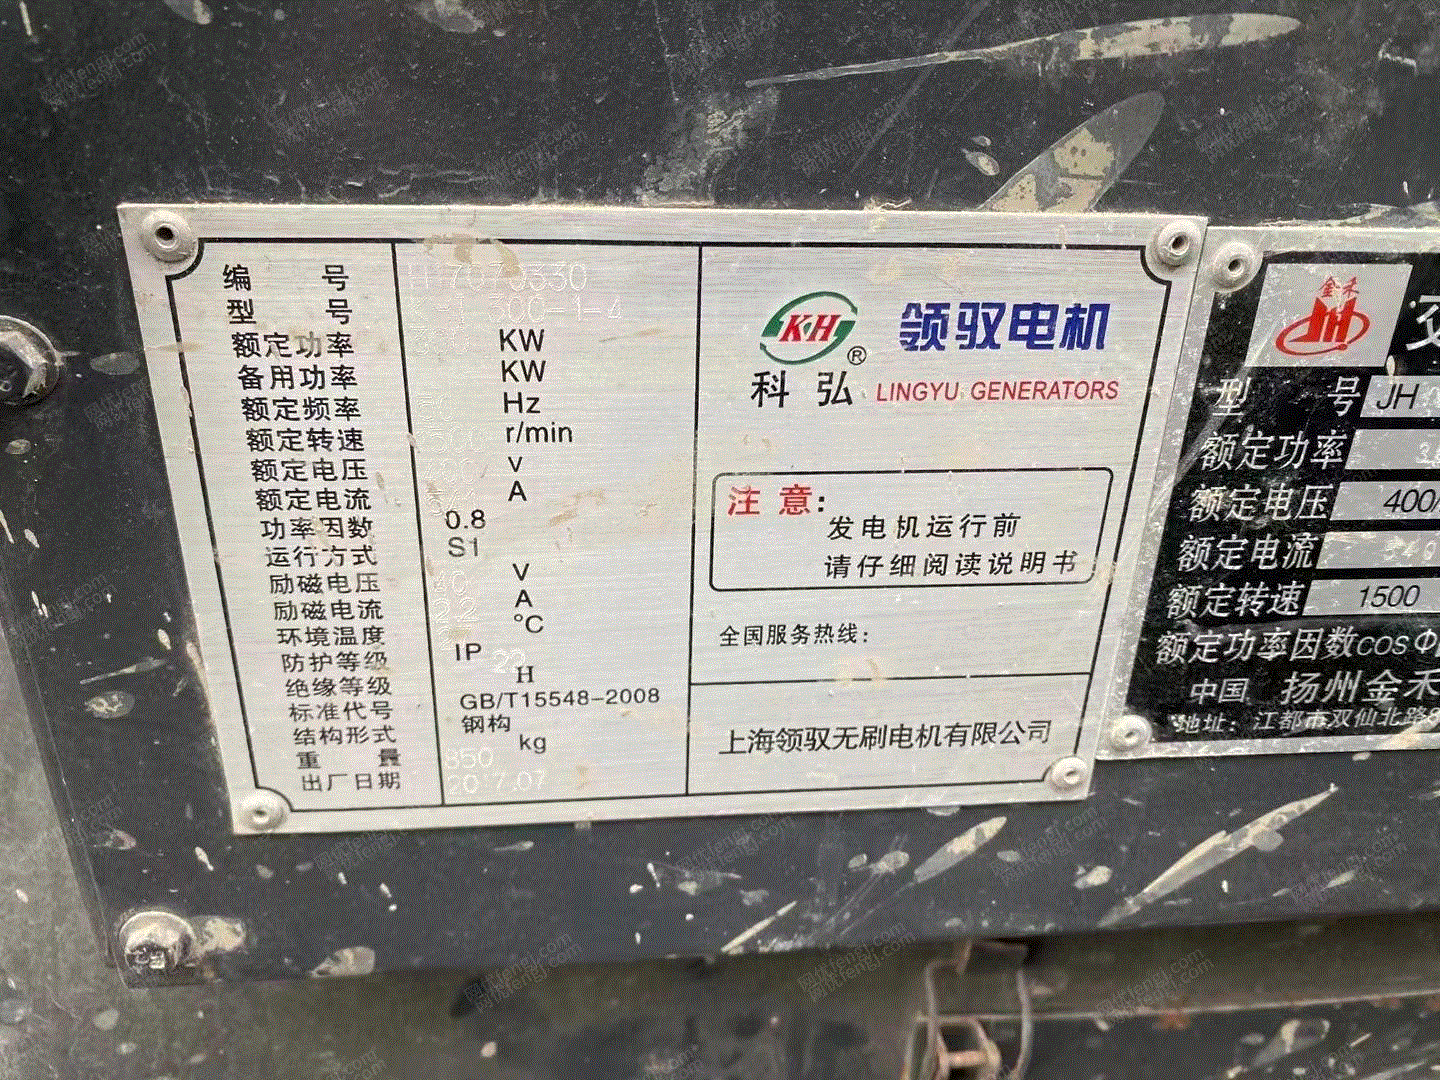 编 号
型 号 300-1-4
额定功率 KW
备用功率 KW
额定频率 Hz
额定转速 r/min
额定电压 400 V
额定电流 A
功率因数 0.8
运行方式 S1
励磁电压 40 V
励磁电流 2.2 A
环境温度 °C
防护等级 IP
绝缘等级 H
标准代号 GB/T15548-2008
结构形式 钢构
重 量 kg
出厂日期 2017.07
KH®
科弘
领驭电机
LINGYU GENERATORS
注意:
发电机运行前
请仔细阅读说明书
全国服务热线:
上海领驭无刷电机有限公司
金禾
JH
型 号 JH
额定功率
额定电压 400/
额定电流
额定转速 1500
额定功率因数cosΦ
中国 扬州金禾
地址: 江都市双仙北路